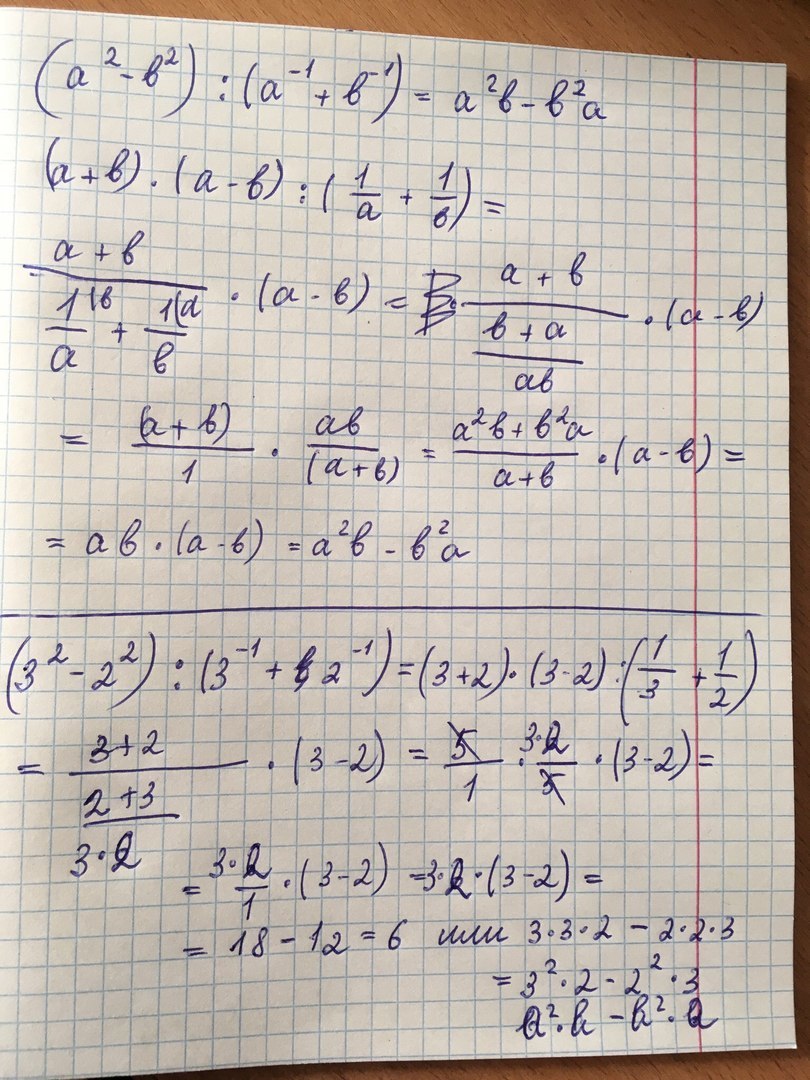 (a² - b²) : (a⁻¹ + b⁻¹) = a²b - b²a
(a + b) · (a - b) : (1/a + 1/b) =
(a + b)/(1/a |b + 1/b |a) · (a - b) = (a + b)/((b + a)/ab) · (a - b)
= (a + b)/1 · ab/(a + b) = (a²b + b²a)/(a + b) · (a - b) =
= ab · (a - b) = a²b - b²a
(3² - 2²) : (3⁻¹ + 2⁻¹) = (3+2) · (3-2) : (1/3 + 1/2)
= (3+2)/((2+3)/(3·2)) · (3-2) = 5/1 · 3·2/5 · (3-2) =
= 3·2/1 · (3-2) = 3·2 · (3-2) =
= 18 - 12 = 6 или 3·3·2 - 2·2·3
= 3²·2 - 2²·3
a²·b - b²·a